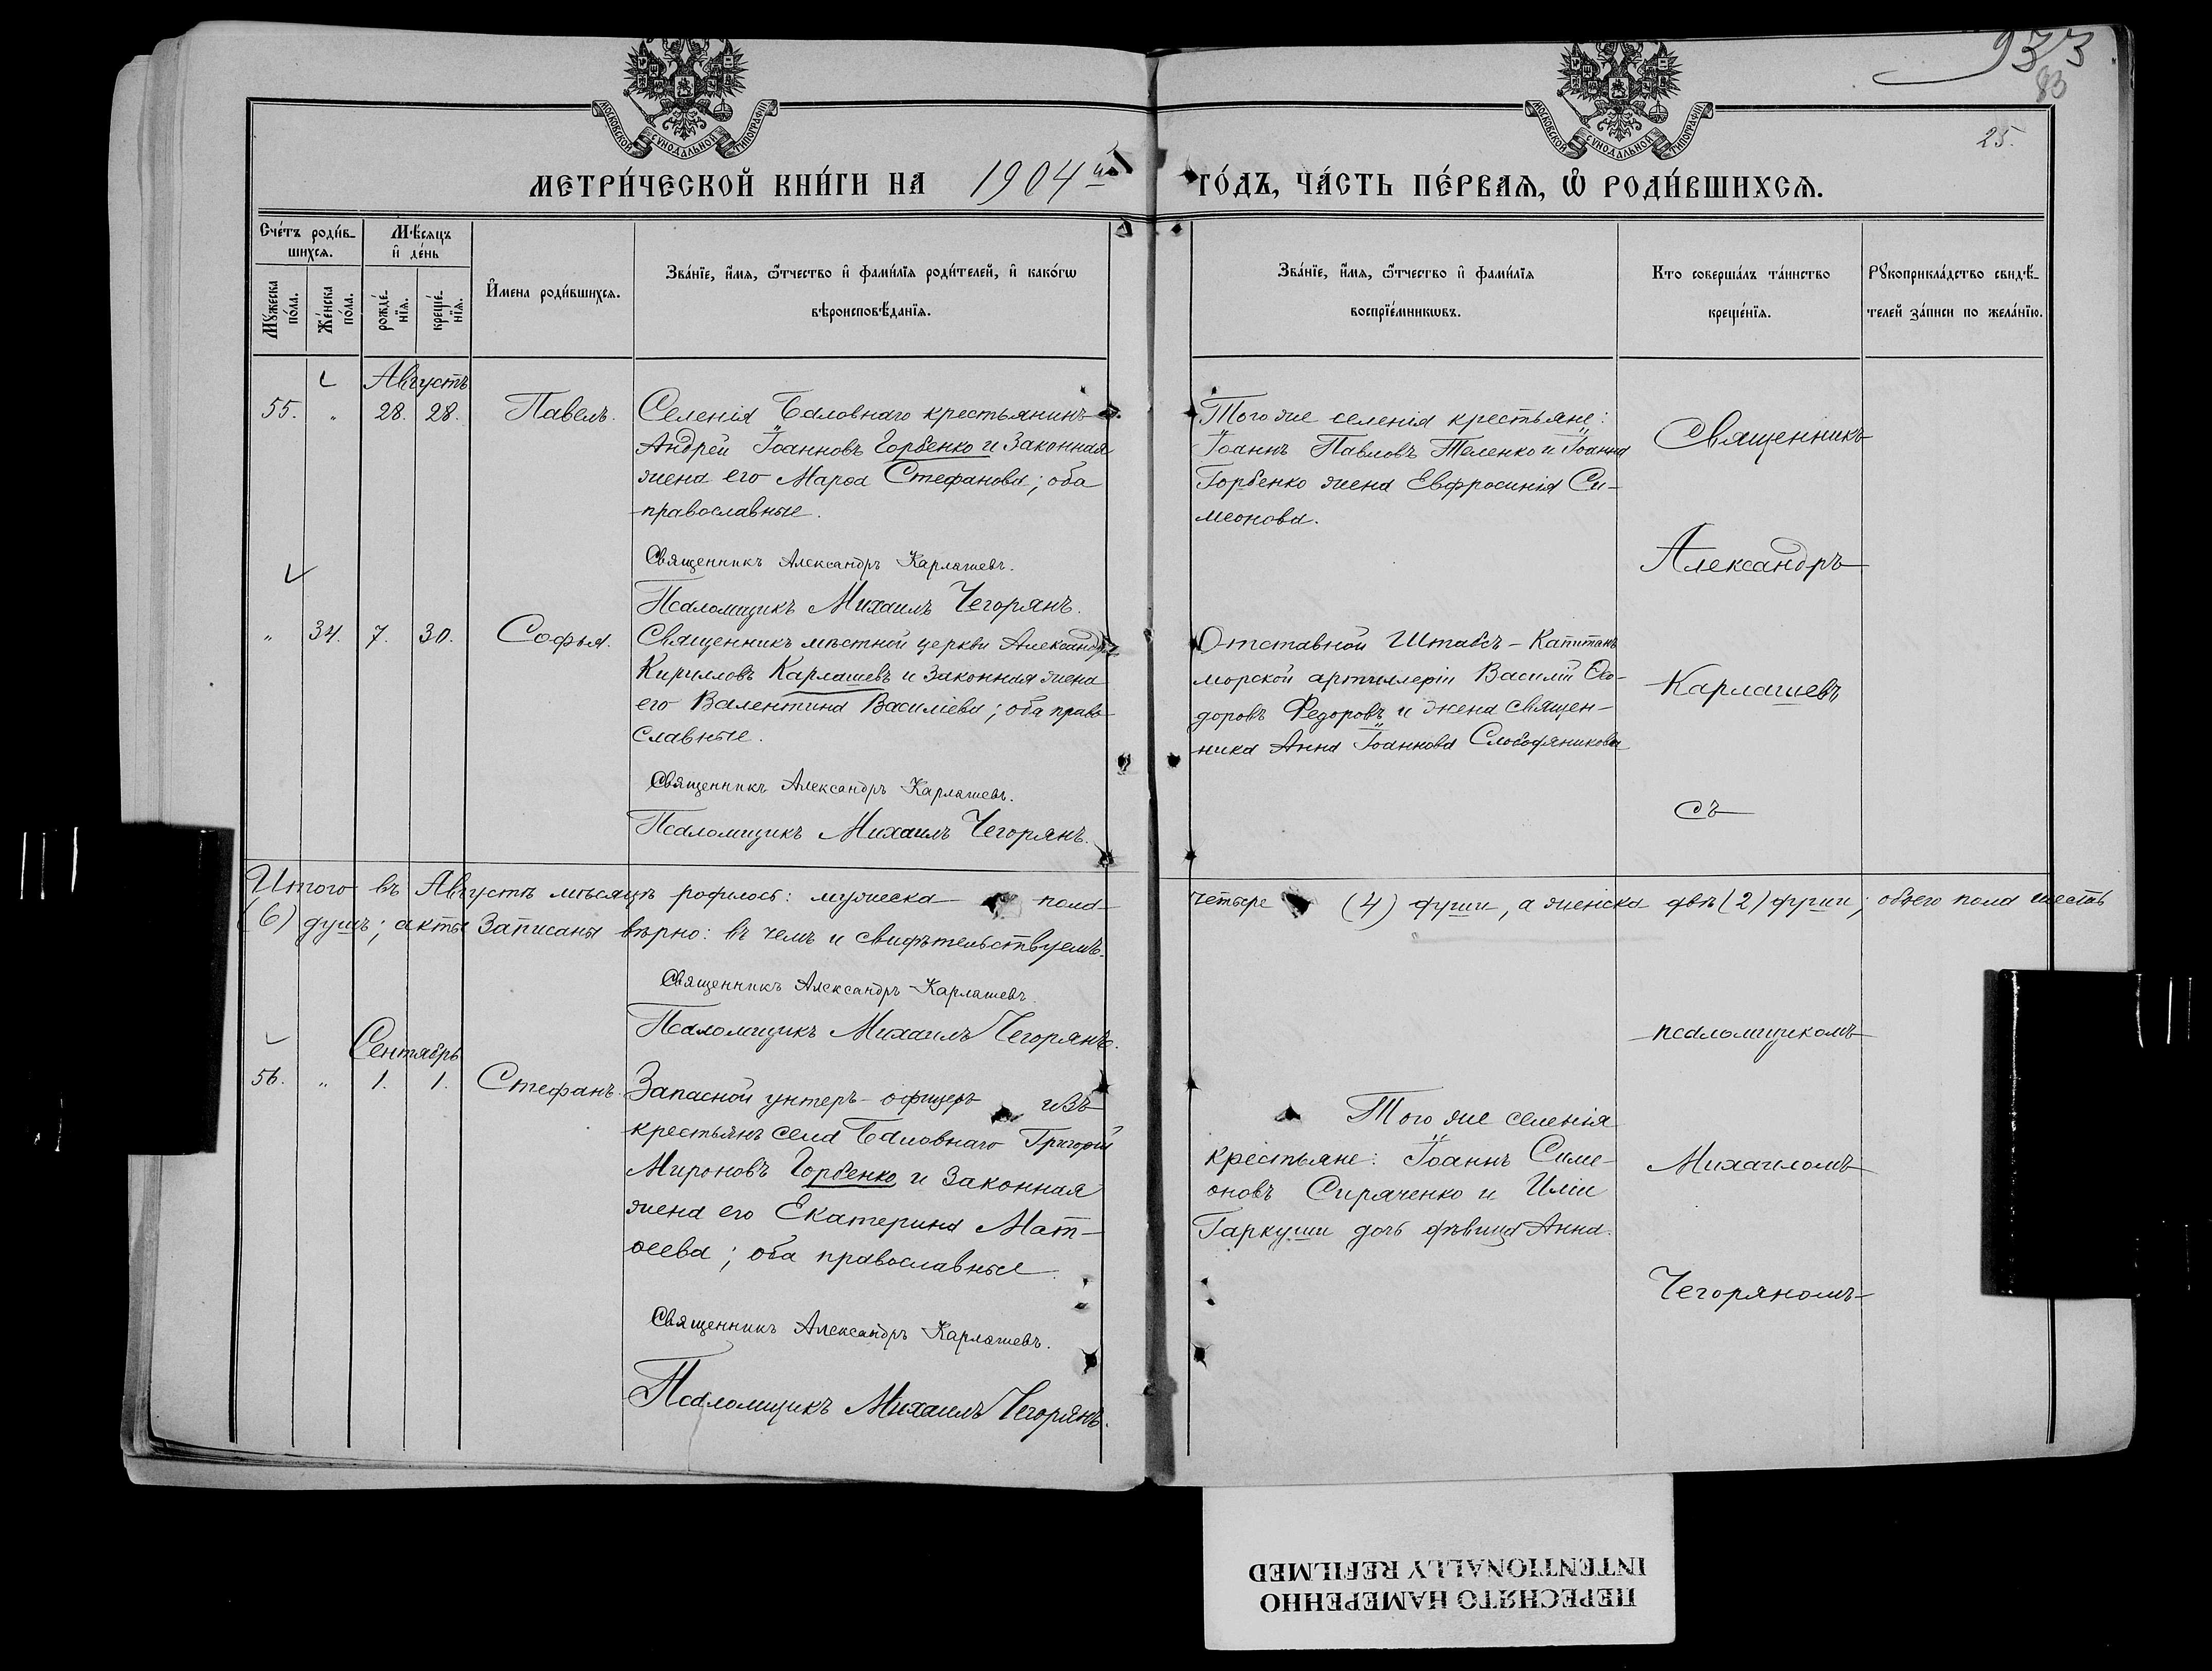 933
83
25.
МОСКОВСКОЙ СѴНОДАЛЬНОЙ ТИПОГРАФІИ
МОСКОВСКОЙ СѴНОДАЛЬНОЙ ТИПОГРАФІИ
МЕТРИ́ЧЕСКОЙ КНИ́ГИ НА 1904й ГО́ДЪ, ЧА́СТЬ ПЕ́РВАѦ, Ѡ҆ РОДИ́ВШИХСѦ.
Сче́тъ роди́в-
шихсѧ.
Мꙋ́жеска
по́ла.
Же́нска
по́ла.
Мѣ́сѧцъ
и҆ де́нь
рожде́-
нїѧ.
креще́-
нїѧ.
И҆мена роди́вшихсѧ.
Зва́нїе, и҆́мѧ, ѻ҆́тчество и҆ фами́лїѧ роди́телей, и҆ како́гѡ
вѣроисповѣ́данїѧ.
Зва́нїе, и҆́мѧ, ѻ҆́тчество и҆ фами́лїѧ
воспрїе́мникѡвъ.
Кто соверша́лъ та́инство
креще́нїѧ.
Рꙋкоприкла́дство свидѣ́-
телей за́писи по жела́нїю.
Августъ
55. „ 28. 28. Павелъ.
Селенія Баловнаго крестьянинъ
Андрей Іоанновъ Горбенко и законная
жена его Марѳа Стефанова; оба
православные.
Священникъ Александръ Карлашевъ.
Псаломщикъ Михаилъ Чегорянъ.
Того же селенія крестьяне:
Іоаннъ Павловъ Теленко и Іоанна
Горбенко жена Евфросинія Си-
меонова.
„ 34. 7. 30. Софья.
Священникъ мѣстной церкви Александръ
Кирилловъ Карлашевъ и законная жена
его Валентина Василіева; оба право-
славные.
Священникъ Александръ Карлашевъ.
Псаломщикъ Михаилъ Чегорянъ.
Отставной Штабсъ-Капитанъ
морской артиллеріи Василій Ѳео-
доровъ Федоровъ и жена священ-
ника Анна Іоаннова Слободяникова
Священникъ
Александръ
Карлашевъ
съ
Итого въ Августѣ мѣсяцѣ родилось: мужеска пола четыре (4) души, а женска двѣ (2) души; обоего пола шесть
(6) душъ; акты записаны вѣрно: въ чемъ и свидѣтельствуемъ.
Священникъ Александръ Карлашевъ.
Псаломщикъ Михаилъ Чегорянъ.
Сентябрь
56. „ 1. 1. Стефанъ.
Запасной унтеръ-офицеръ изъ
крестьянъ села Баловнаго Григорій
Мироновъ Горбенко и законная
жена его Екатерина Мат-
ѳеева; оба православные.
Священникъ Александръ Карлашевъ.
Псаломщикъ Михаилъ Чегорянъ.
Того же селенія
крестьяне: Іоаннъ Симе-
оновъ Сираченко и Иліи
Гаркуши дочь дѣвица Анна.
псаломщикомъ
Михаиломъ
Чегоряномъ
ПЕРЕСНЯТО НАМЕРЕННО
INTENTIONALLY REFILMED